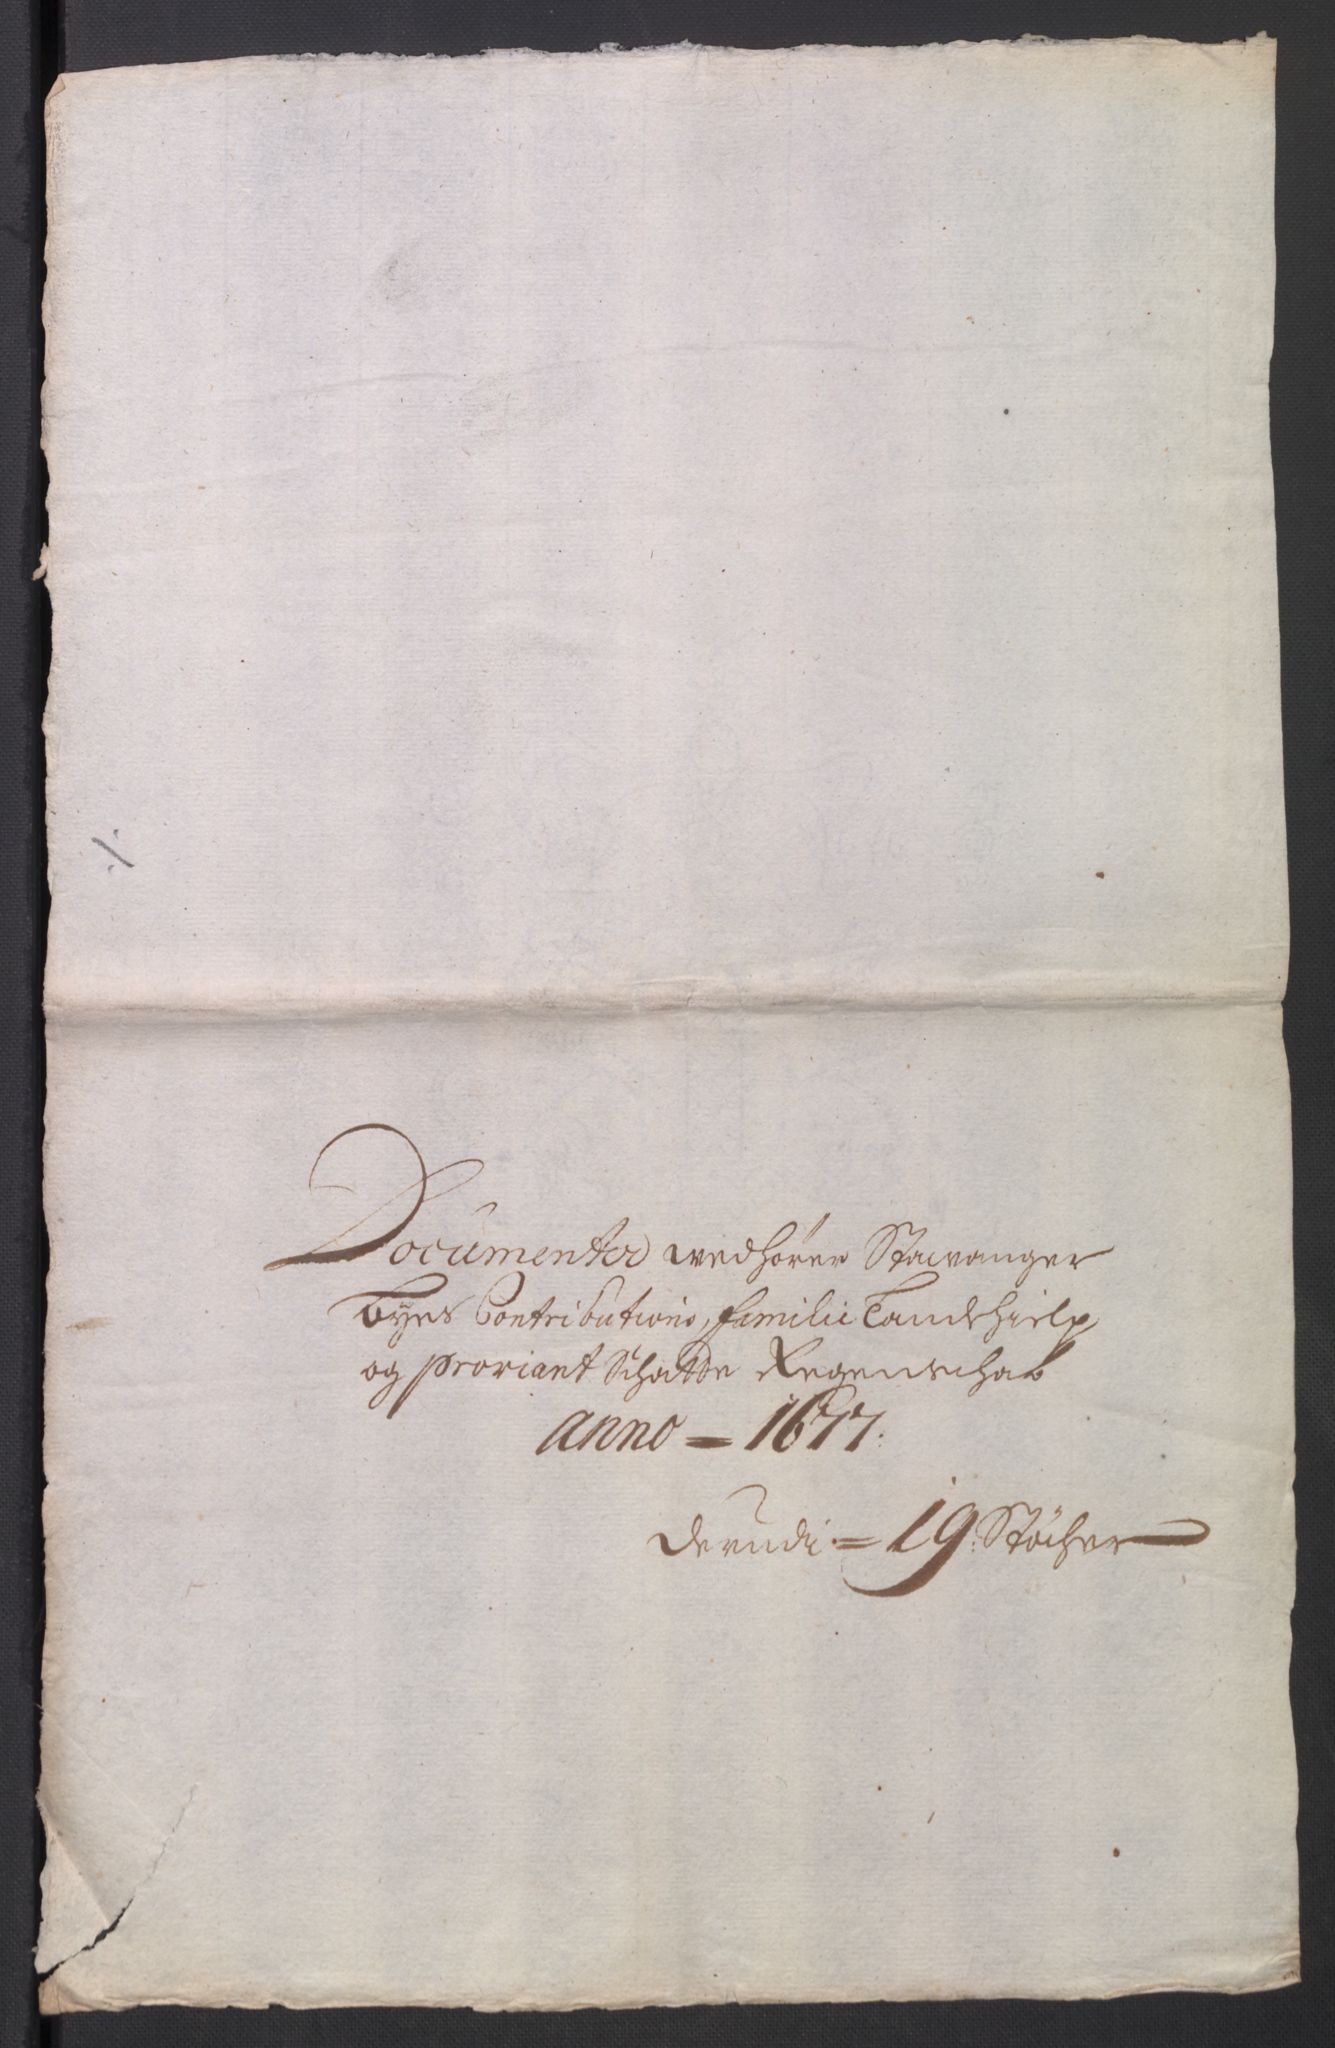 Documenter wedhörer Stawanger
Byes Contributions, familie Landehielp
og proviant Schatte Regenschab
Anno = 1677.
derudi = 19: Stöcher